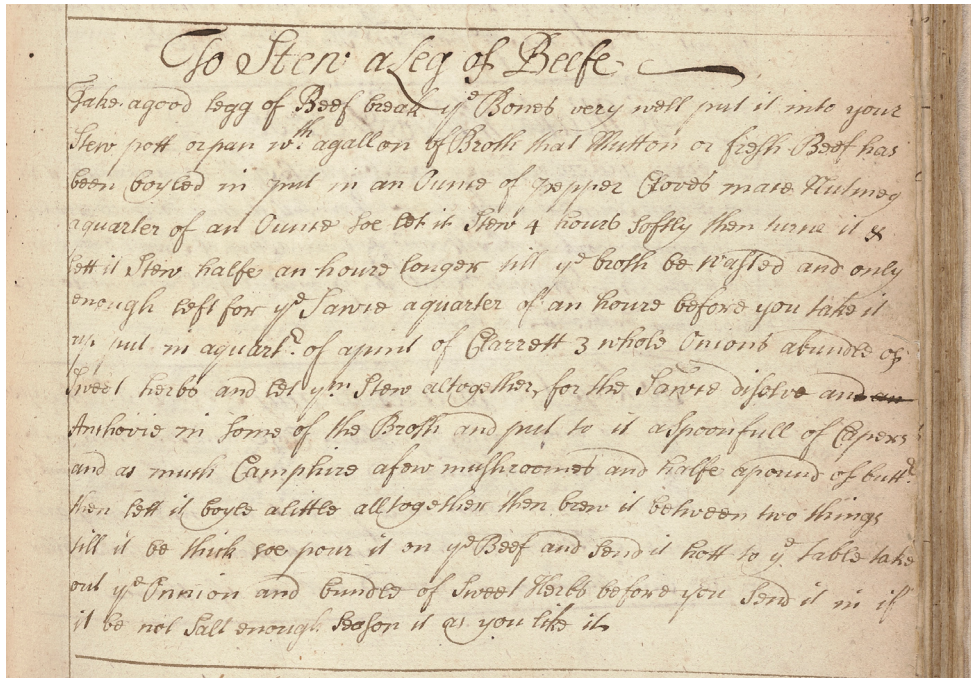 To Stew a Leg of Beefe
Take a good legg of Beef break ye Bones very well put it into your
Stew pott or pan wth a gallon of Broth that Mutton or fresh Beef has
been boyled in put in an Ounce of Pepper Cloves mace Nutmeg
a quarter of an Ounce soe let it Stew 4 hours softly then turne it &
lett it Stew halfe an houre longer till ye broth be wasted and only
enough left for ye Sawce a quarter of an houre before you take it
up put in a quartr. of a pint of Clarrett 3 whole Onions a bundle of
Sweet herbs and let ym Stew altogether, for the Sawce disolve an
Anchovie in some of the Broth and put to it a spoonfull of Capers
and as much Camphire a few mushroomes and halfe a pound of buttr.
then lett it boyle a little alltogether then brew it between two things
till it be thick soe pour it on ye Beef and send it hott to ye table take
out ye Onnion and bundle of Sweet Herbs before you Send it in if
it be not Salt enough season it as you like it.